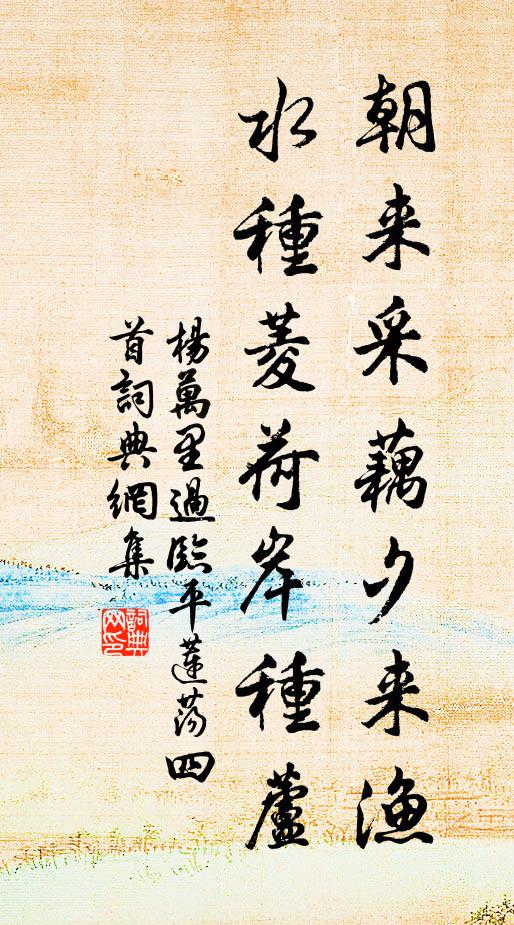 朝来采藕夕来漁
水種菱荷岸種蘆
楊萬里過臨平蓮蕩四
首詞典網集
詞典
网印